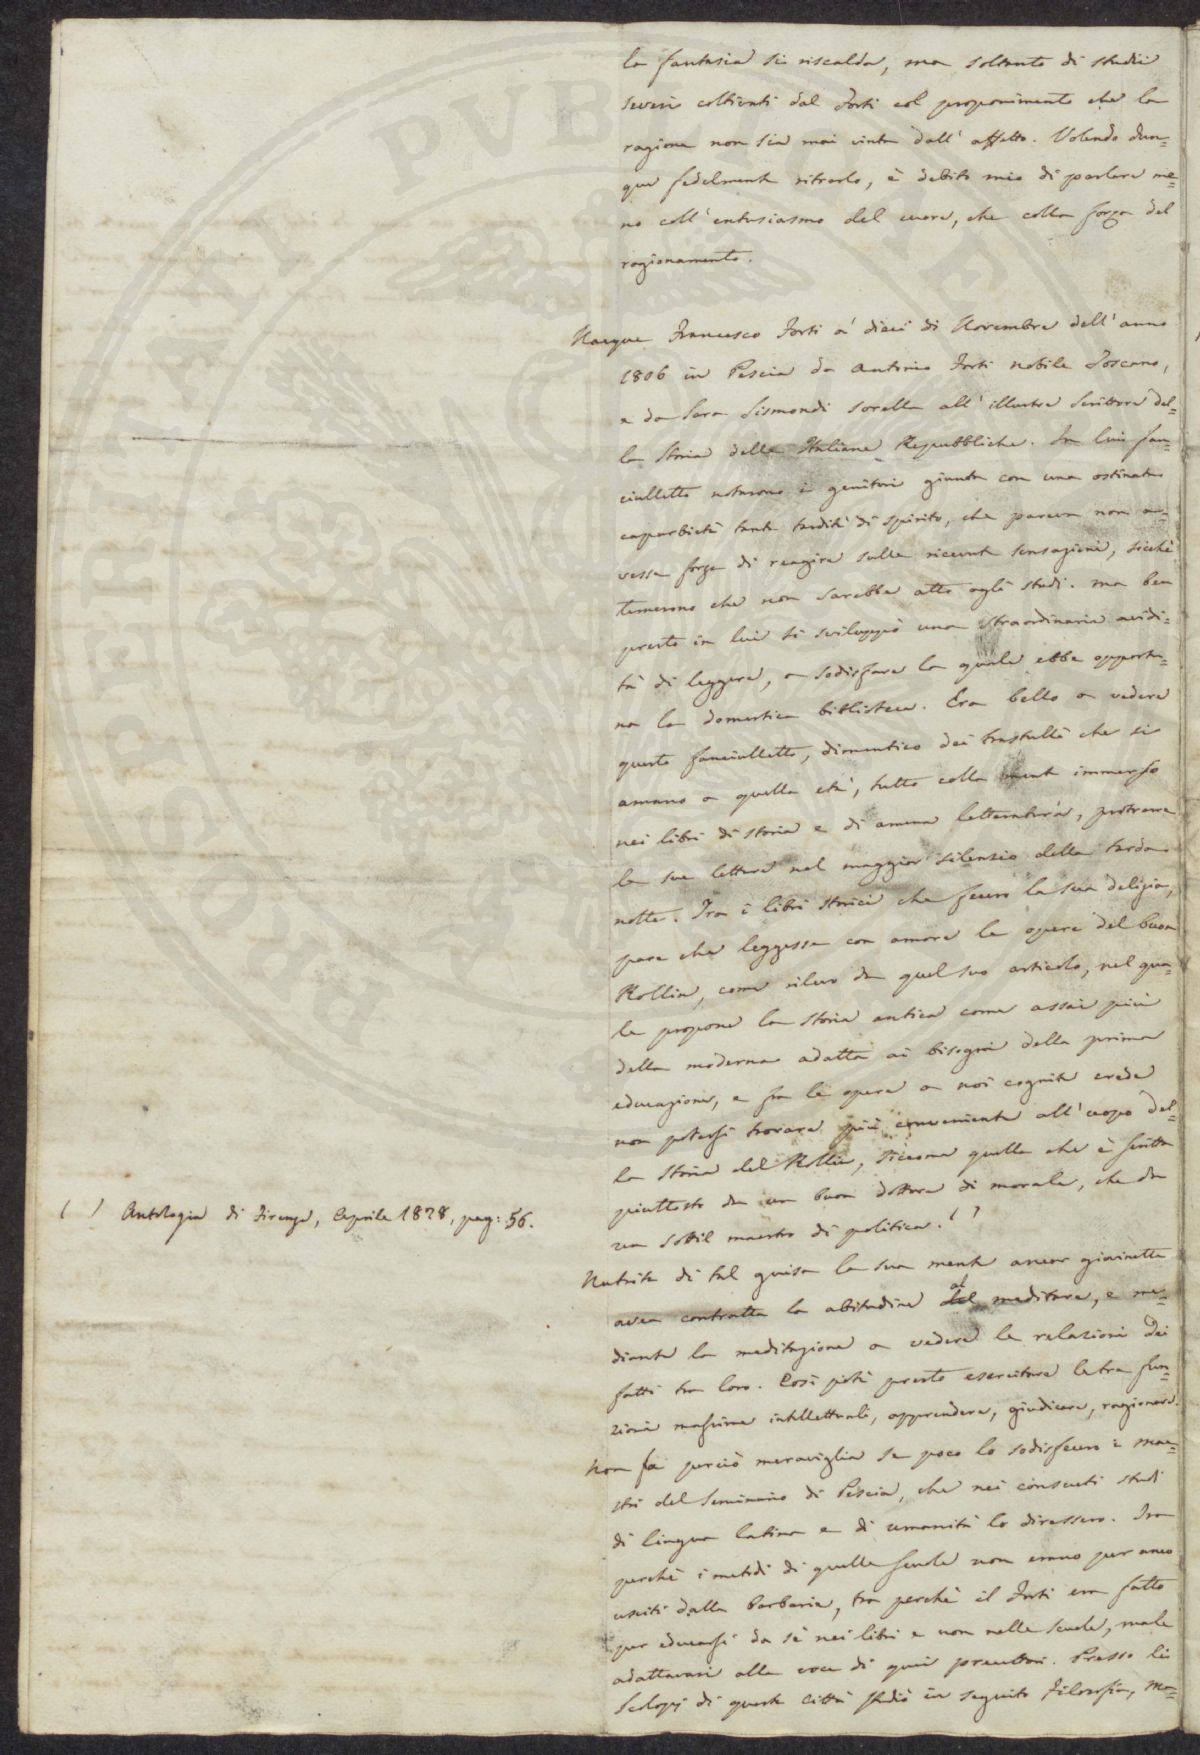 la fantasia si riscalda, ma soltanto di studii
severi coltivati dal Forti col proponimento che la
ragione non sia mai vinta dall' affetto. Volendo dun=
que fedelmente ritrarlo, è debito mio di parlare me=
no coll' entusiasmo del cuore, che colla forza del
ragionamento.
Nacque Francesco Forti a' dieci di Novembre dell' anno
1806 in Pescia da Antonio Forti nobile Toscano,
e da Sara Sismondi sorella all' illustre Scrittore del=
la Storia delle Italiane Repubbliche. In lui fan=
ciulletto notarono i genitori giunta con una ostinata
caparbietà tanta tardità di spirito, che pareva non a=
vesse forza di reagire sulle ricevute sensazioni, sicchè
temerono che non sarebbe atto agli studi. Ma ben
presto in lui si sviluppò una straordinaria avidi=
tà di leggere, a sodisfare la quale ebbe opportu=
na la domestica biblioteca. Era bello a vedere
questo fanciulletto, dimentico dei trastulli che si
amano a quella età, tutto colla mente immerso
nei libri di storia e di amena letteratura, protrarre
le sue letture nel maggior silenzio della tarda
notte. Tra i libri storici che fecero la sua delizia,
pare che leggesse con amore le opere del buon
Rollin, come rilevo da quel suo articolo, nel qua=
le propone la storia antica come assai più
della moderna adatta ai bisogni della prima
educazione, e fra le opere a noi cognite crede
non potersi trovare più conveniente all' uopo del=
la Storia del Rollin, siccome quella che è scritta
piuttosto da un buon dottore di morale, che da
un sottil maestro di politica. ( )
( ) Antologia di Firenze, Aprile 1828, pag: 56.
Nutrita di tal guisa la sua mente ancor giovinetta
avea contratta la abitudine al meditare, e me=
diante la meditazione a vedere le relazioni dei
fatti tra loro. Così potè presto esercitare le tre fun=
zioni massime intellettuali, apprendere, giudicare, ragionare.
Non fa perciò meraviglia se poco lo sodisfecero i mae=
stri del Seminario di Pescia, che nei consueti studi
di lingua latina e di umanità lo diressero. Tra
perchè i metodi di quelle scuole non erano per anco
usciti dalla barbarie, tra perchè il Forti era fatto
per educarsi da sè nei libri e non nelle scuole, male
adattavasi alla voce di quei precettori. Presso li
Scolopj di questa città studiò in seguito Filosofia, Ma=